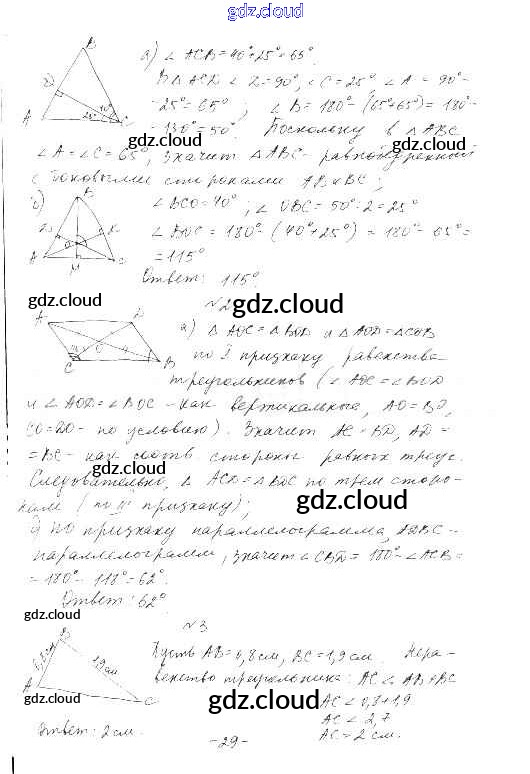 gdz.cloud
а) ∠ ACB = 40°+25° = 65°.
В △ ACD ∠ D = 90°, ∠ C = 25° ∠ A = 90°-
-25° = 65°; ∠ B = 180°- (65°+65°) = 180°-
-130° = 50°. Поскольку в △ ABC
gdz.cloud
gdz.cloud
∠ A = ∠ C = 65°, значит △ ABC - равнобедренный
с боковыми сторонами AB и BC;
gdz.cloud
б) ∠ BCO = 40°; ∠ OBC = 50°:2 = 25°
∠ BOC = 180°- (40°+25°) = 180°- 65° =
= 115°
Ответ: 115°.
gdz.cloud
gdz.cloud
№2
gdz.cloud
а) △ AOC = △ BOD и △ AOD = △ COB
по I признаку равенства
треугольников (∠ AOC = ∠ BOD
и ∠ AOD = ∠ BOC - как вертикальные, AO = BO,
CO = DO - по условию). Значит AC = BD, AD =
= BC - как соотв стороны равных треуг.
gdz.cloud
Следовательно, △ ACD = △ BDC по трем сторо-
нам (по III признаку);
gdz.cloud
По признаку параллелограмма, ADBC -
параллелограмм, значит ∠ CBD = 180°- ∠ ACB =
= 180°- 118° = 62°.
Ответ: 62°
gdz.cloud
№3
Пусть AB = 0,8 см, BC = 1,9 см. Нера-
венство треугольника: AC < AB + BC
gdz.cloud
gdz.cloud
gdz.cloud
AC < 0,8+1,9
AC < 2,7
AC = 2 см.
Ответ: 2 см.
-29-
gdz.cloud